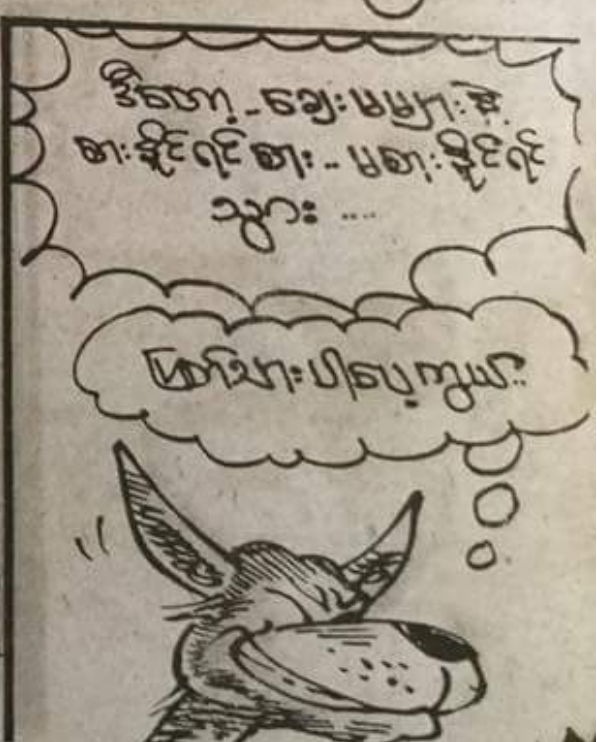 ဒီတော့ - ဈေးမများနဲ့
စားနိုင်ရင်စား .. မစားနိုင်ရင်
သွား ....
ဖြတ်သားပါပေ့ကွယ် ..